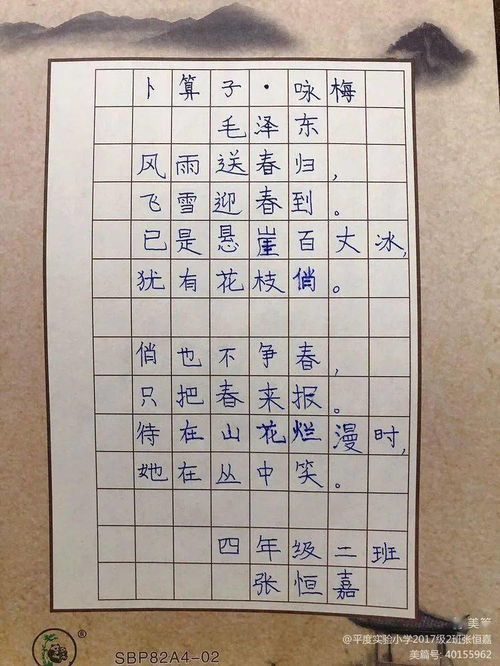 卜算子·咏梅
毛泽东
风雨送春归，
飞雪迎春到。
已是悬崖百丈冰，
犹有花枝俏。
俏也不争春，
只把春来报。
待在山花烂漫时，
她在丛中笑。
四年级二班
张恒嘉
美篇
@平度实验小学2017级2班张恒嘉
美篇号: 40155962
®
SBP82A4-02